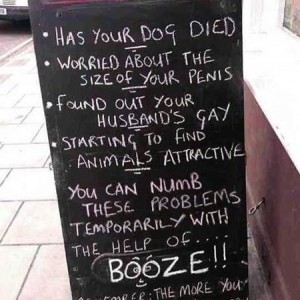 • HAS YOUR DOG DIED
• WORRIED ABOUT THE
SIZE OF YOUR PENIS
• FOUND OUT YOUR
HUSBAND'S GAY
• STARTING TO FIND
ANIMALS ATTRACTIVE
YOU CAN NUMB
THESE PROBLEMS
TEMPORARILY WITH
THE HELP OF...
BOOZE!!
REMEMBER: THE MORE YOU